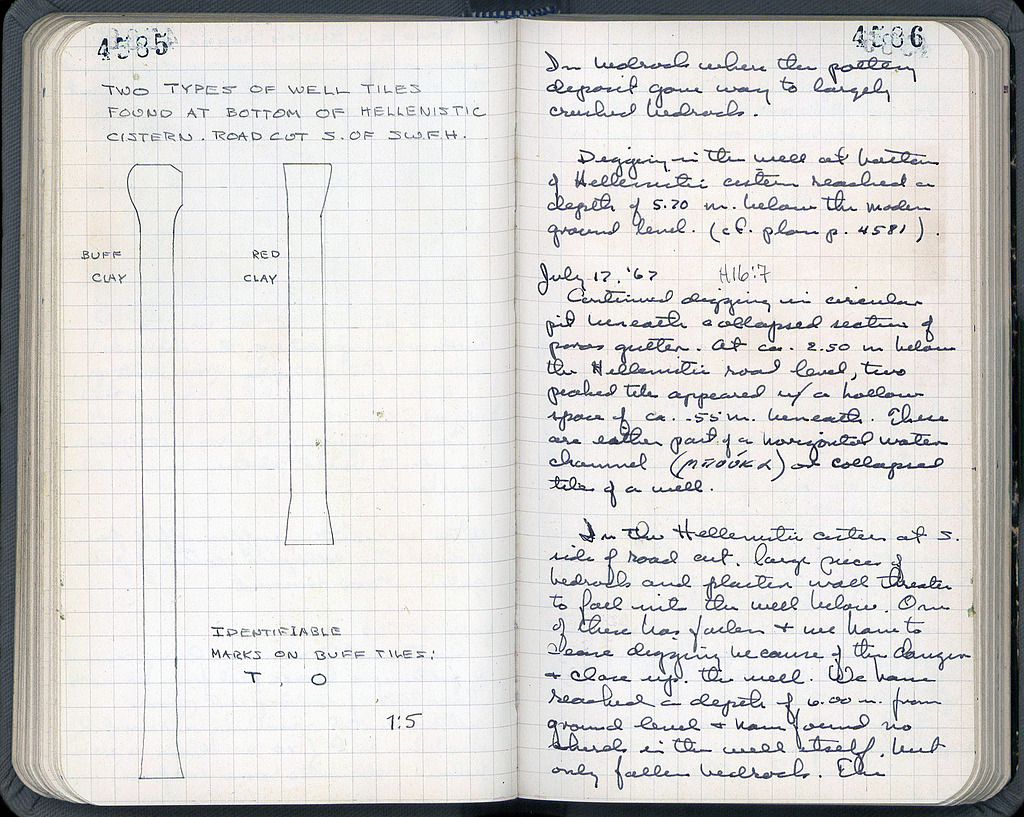 4585
TWO TYPES OF WELL TILES
FOUND AT BOTTOM OF HELLENISTIC
CISTERN. ROAD CUT S. OF SW.F.H.
BUFF
CLAY
RED
CLAY
IDENTIFIABLE
MARKS ON BUFF TILES:
T, O
1:5
4586
In bedrock where the pottery
deposit gave way to largely
crushed bedrock.
Digging in the well at bottom
of Hellenistic cistern reached a
depth of 5.70 m. below the modern
ground level. (cf. plan p. 4581).
July 17, '67 H16:7
Continued digging in circular
pit beneath collapsed section of
poros gutter. At ca. 2.50 m below
the Hellenistic road level, two
peaked tile appeared w/ a hollow
space of ca. .55 m. beneath. These
are either part of a horizontal water
channel or collapsed
tile of a well.
In the Hellenistic cistern at S.
side of road cut, large pieces of
bedrock and plaster wall threaten
to fall into the well below. One
of these has fallen + we have to
cease digging because of the danger
+ close up the well. We have
reached a depth of 6.00 m. from
ground level + have found no
sherds in the well itself, but
only fallen bedrock. The